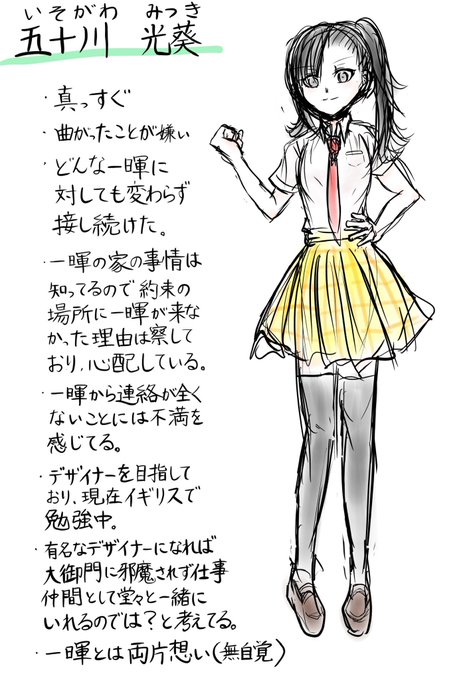 いそがわ みつき
五十川 光葵
・真っすぐ
・曲がったことが嫌い
・どんな一暉に
対しても変わらず
接し続けた。
・一暉の家の事情は
知ってるので約束の
場所に一暉が来な
かった理由は察して
おり、心配している。
・一暉から連絡が全く
ないことには不満を
感じてる。
・デザイナーを目指して
おり、現在イギリスで
勉強中。
・有名なデザイナーになれば
大御門に邪魔されず仕事
仲間として堂々と一緒に
いれるのでは?と考えてる。
・一暉とは両片想い(無自覚)